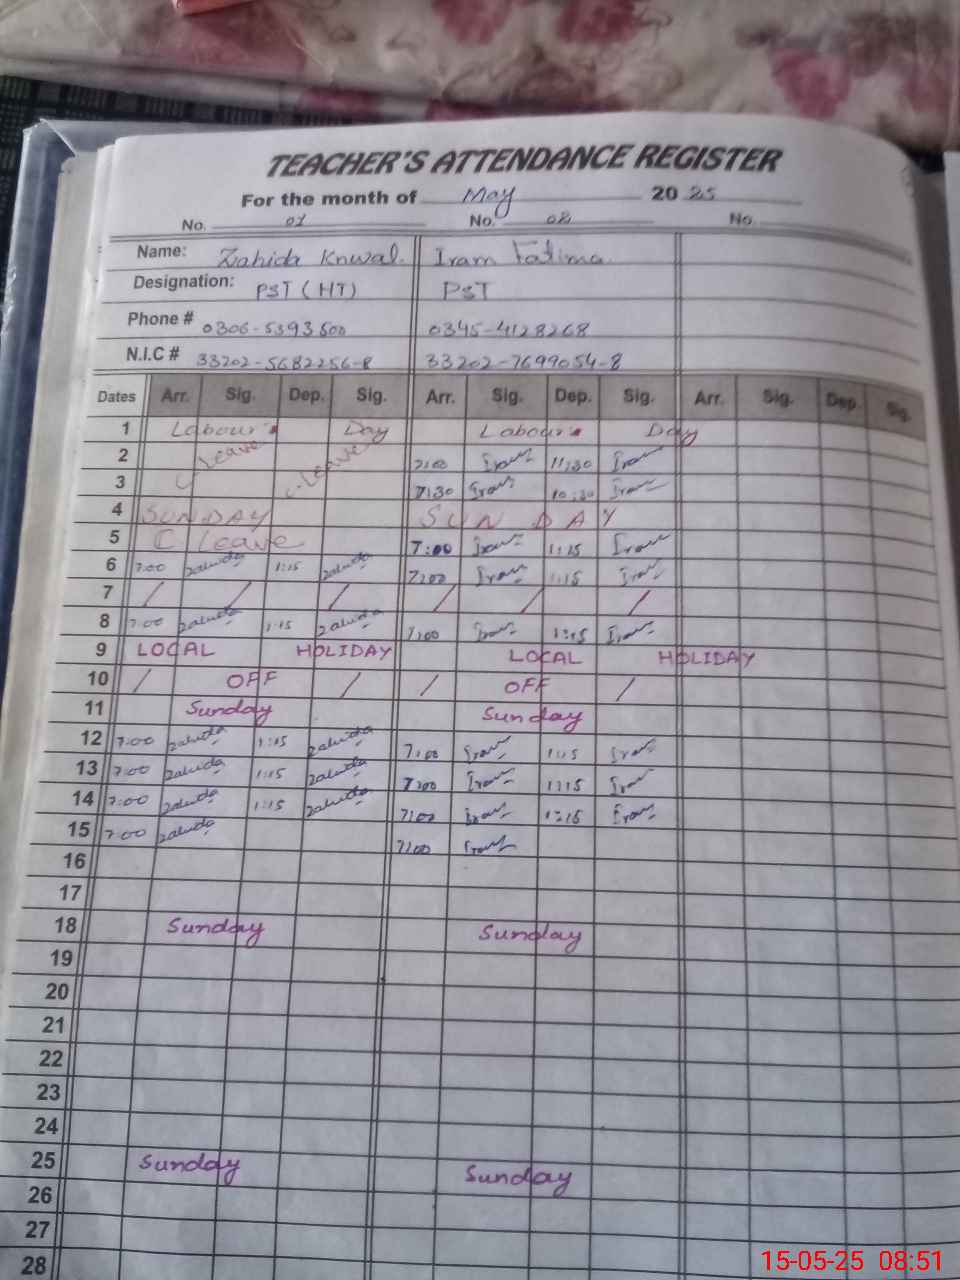 TEACHER'S ATTENDANCE REGISTER
For the month of May 2025
No. 01 No. 02 No.
Name: Zahida Knwal. Iram Fatima.
Designation: PST (HT) PST
Phone # 0306-5393500 0345-4128268
N.I.C # 33202-5682256-8 33202-7699054-8
Dates Arr. Sig. Dep. Sig. Arr. Sig. Dep. Sig. Arr. Sig. Dep. Sig.
1 Labour Day Labour Day
2 Leave Leave 7:00 Iram 11:30 Iram
3 7:30 Iram 10:30 Iram
4 SUNDAY SUNDAY
5 C leave 7:00 Iram 1:15 Iram
6 7:00 Zahida 1:15 Zahida 7:00 Iram 1:15 Iram
7 / / / / / /
8 7:00 Zahida 1:15 Zahida 7:00 Iram 1:15 Iram
9 LOCAL HOLIDAY LOCAL HOLIDAY
10 / OFF / / OFF /
11 Sunday Sunday
12 7:00 Zahida 1:15 Zahida 7:00 Iram 1:15 Iram
13 7:00 Zahida 1:15 Zahida 7:00 Iram 1:15 Iram
14 7:00 Zahida 1:15 Zahida 7:00 Iram 1:15 Iram
15 7:00 Zahida 7:00 Iram
16
17
18 Sunday Sunday
19
20
21
22
23
24
25 Sunday Sunday
26
27
28
15-05-25 08:51